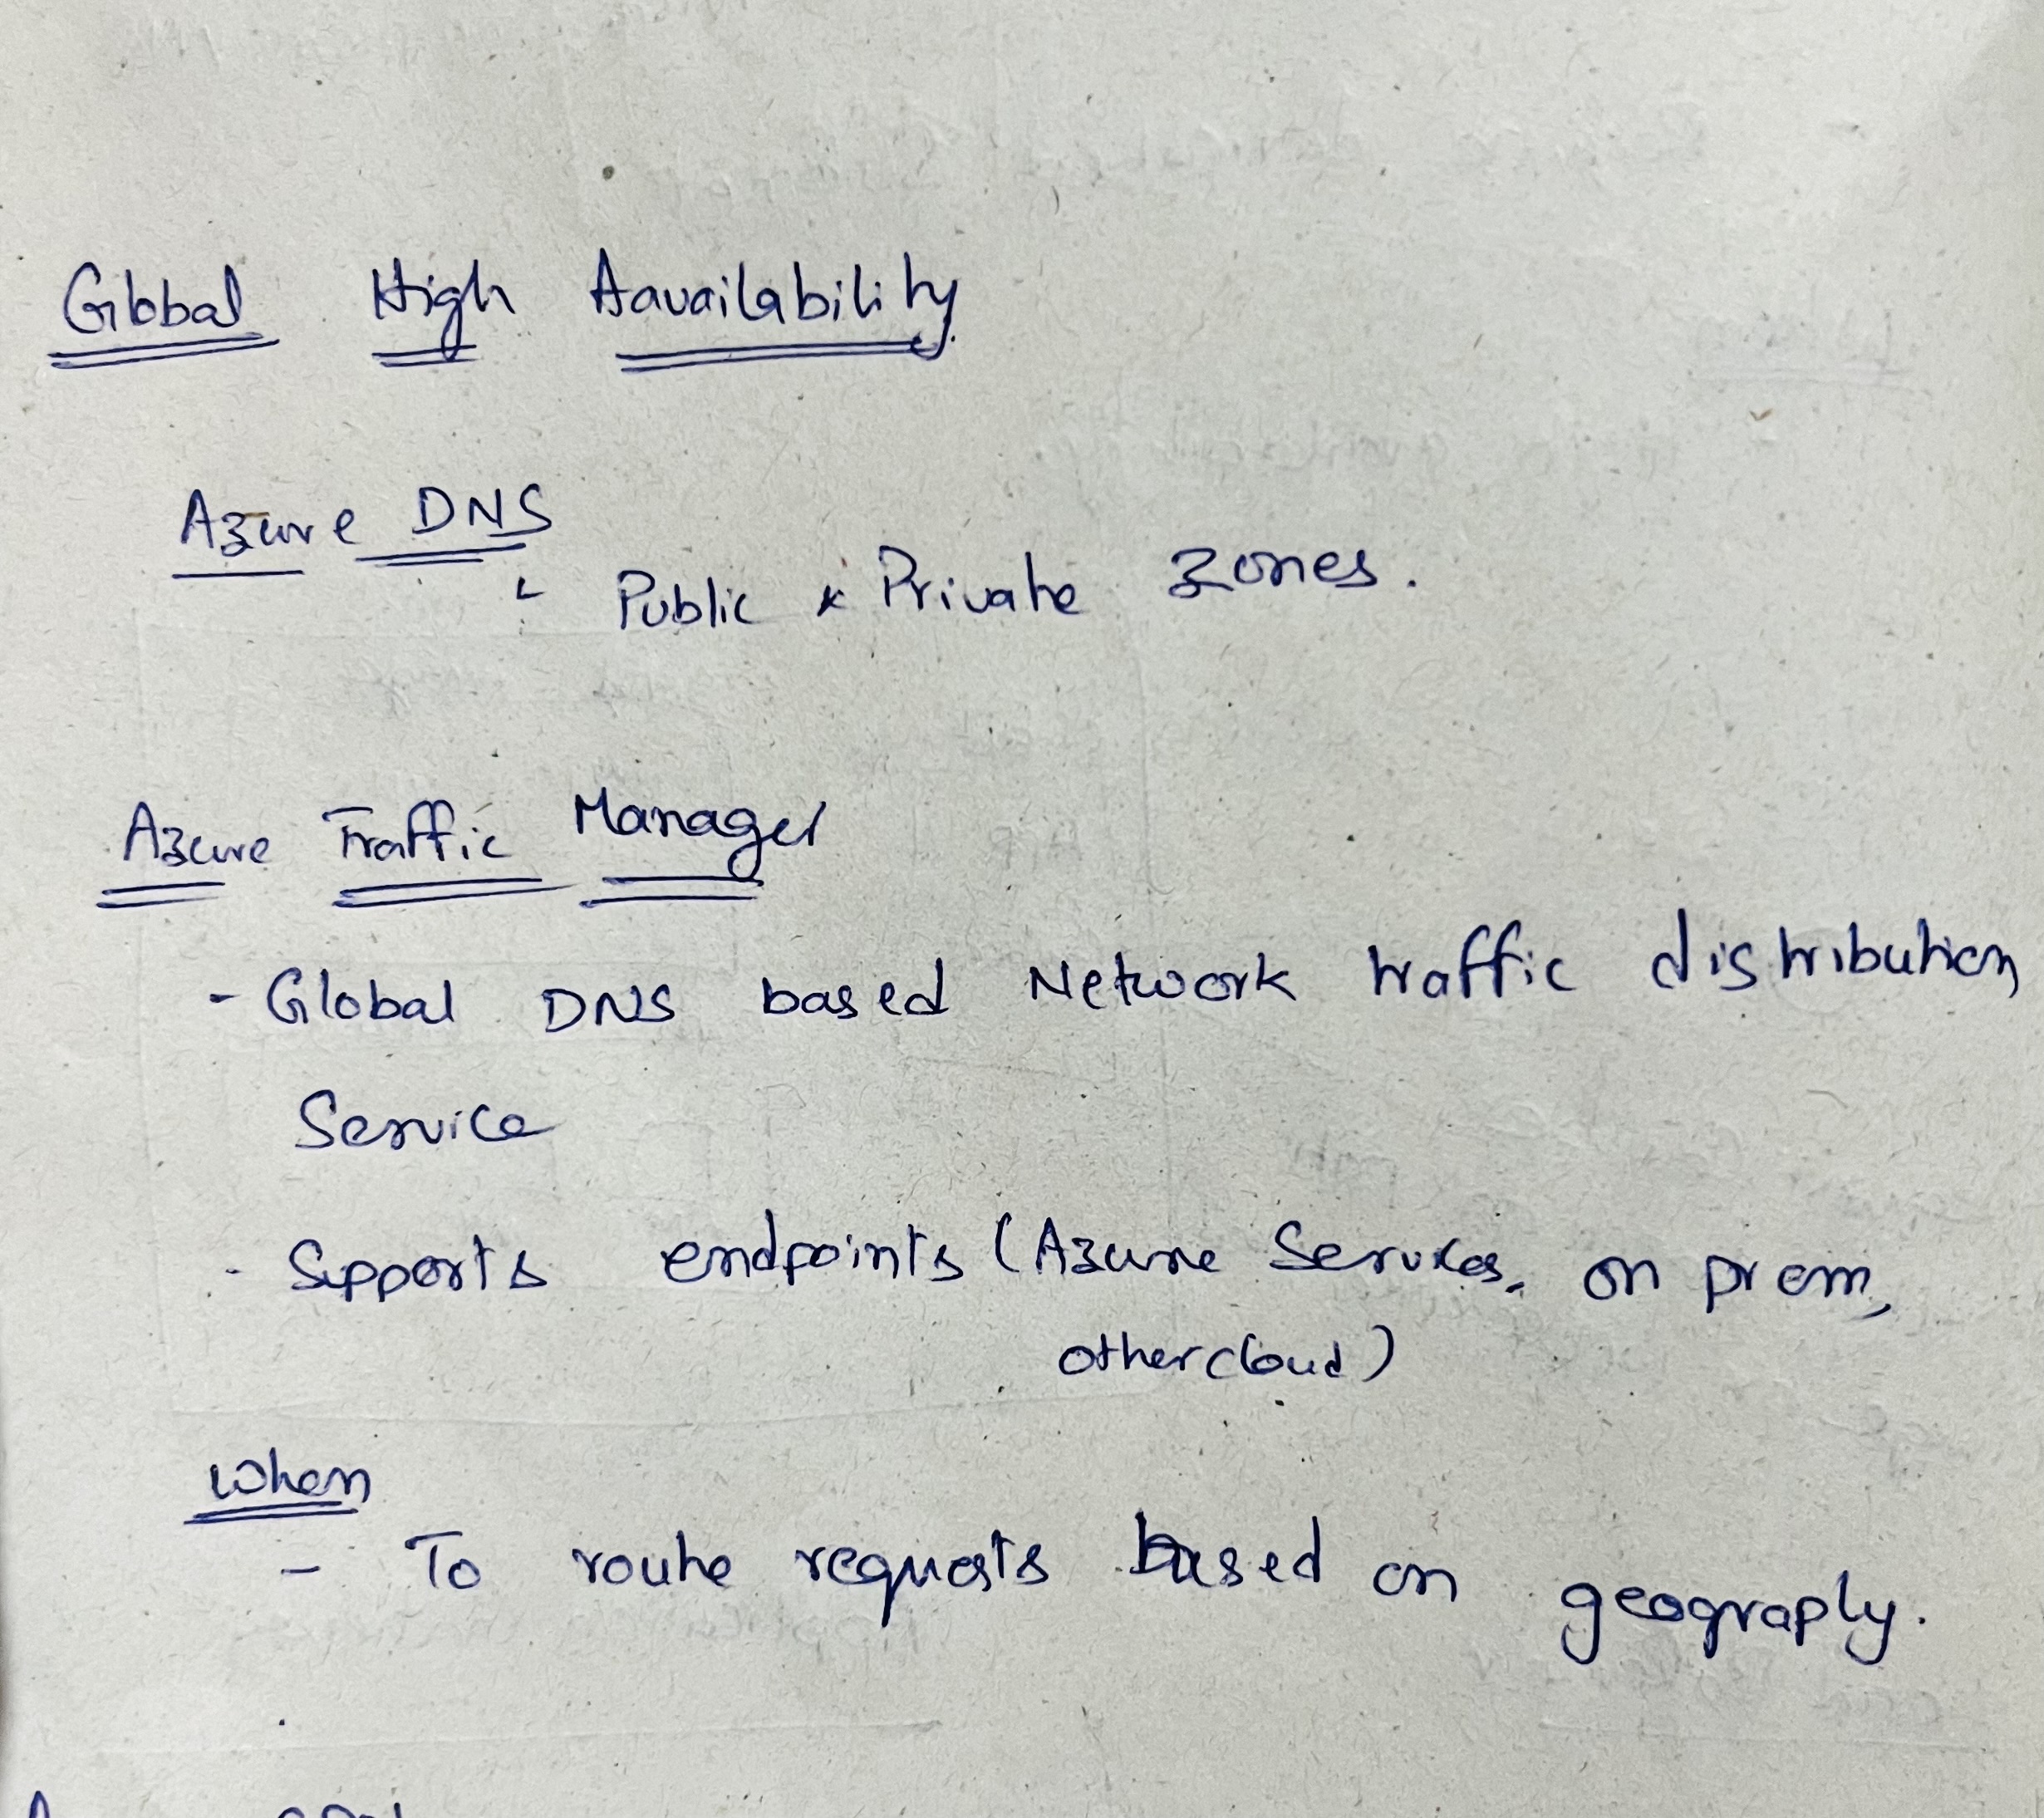 Global High Aavailability
Azure DNS
Public & Private Zones.
Azure Traffic Manager
- Global DNS based Network traffic distribution
Service
- Supports endpoints (Azure Services, on prem,
other cloud)
When
- To route requests based on geography.